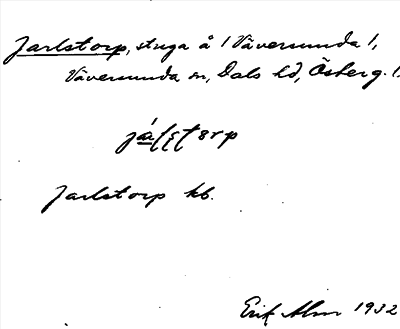 Jarlstorp, stuga å (Väversunda),
Väversunda sn, Dals hd, Österg.l.
Jarlstorp kb.
Erik Alm 1932